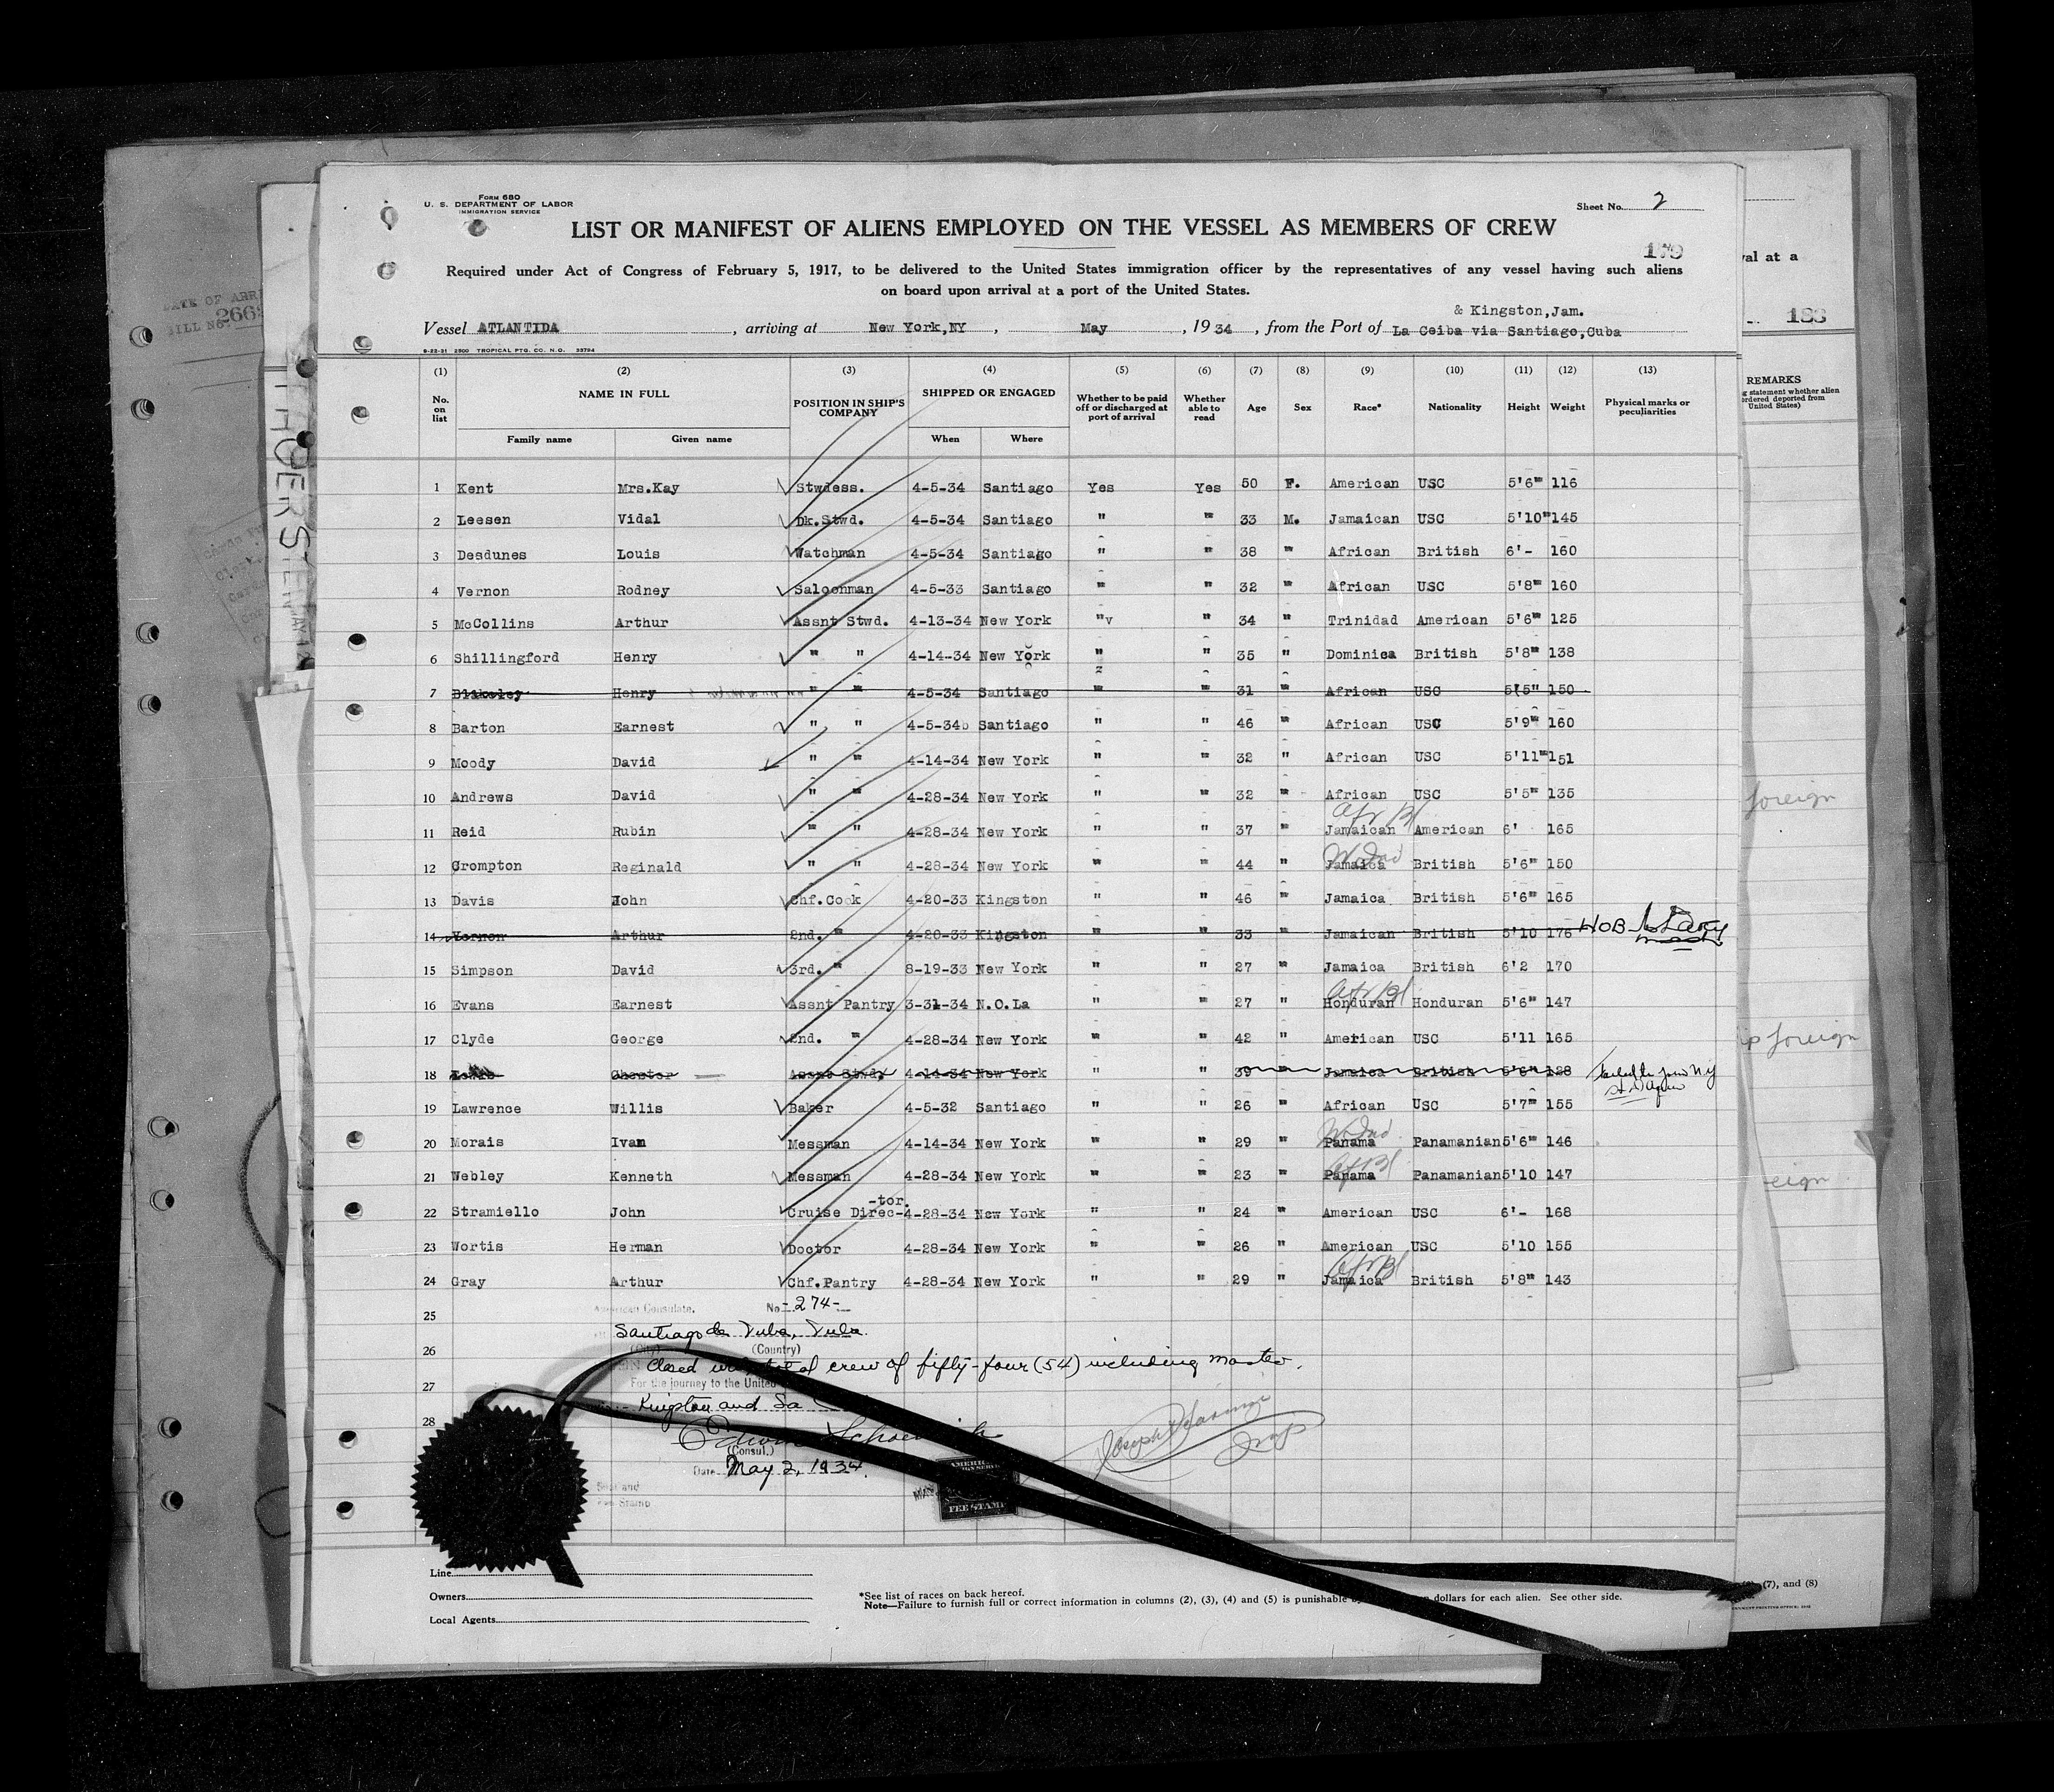 Form 680
U. S. DEPARTMENT OF LABOR
IMMIGRATION SERVICE
Sheet No. 2
LIST OR MANIFEST OF ALIENS EMPLOYED ON THE VESSEL AS MEMBERS OF CREW
179
Required under Act of Congress of February 5, 1917, to be delivered to the United States immigration officer by the representatives of any vessel having such aliens
on board upon arrival at a port of the United States.
& Kingston,Jam.
Vessel ATLANTIDA , arriving at New York,NY , May , 1934 , from the Port of La Ceiba via Santiago,Cuba
8-22-31 2500 TROPICAL PTG. CO. N.O. 33794
(1) (2) (3) (4) (5) (6) (7) (8) (9) (10) (11) (12) (13)
No. on list NAME IN FULL POSITION IN SHIP'S COMPANY SHIPPED OR ENGAGED Whether to be paid off or discharged at port of arrival Whether able to read Age Sex Race* Nationality Height Weight Physical marks or peculiarities
Family name Given name When Where
1 Kent Mrs.Kay Stwdess. 4-5-34 Santiago Yes Yes 50 F. American USC 5'6" 116
2 Leesen Vidal Dk.Stwd. 4-5-34 Santiago " " 33 M. Jamaican USC 5'10" 145
3 Desdunes Louis Watchman 4-5-34 Santiago " " 38 " African British 6'- 160
4 Vernon Rodney Saloonman 4-5-33 Santiago " " 32 " African USC 5'8" 160
5 McCollins Arthur Assnt Stwd. 4-13-34 New York "v " 34 " Trinidad American 5'6" 125
6 Shillingford Henry " " 4-14-34 New York " " 35 " Dominica British 5'8" 138
7 Blakeley Henry " " 4-5-34 Santiago " " 31 " African USC 5'5" 150
8 Barton Earnest " " 4-5-34b Santiago " " 46 " African USC 5'9" 160
9 Moody David " " 4-14-34 New York " " 32 " African USC 5'11" 151
10 Andrews David " " 4-28-34 New York " " 32 " African USC 5'5" 135
Afr Bl
11 Reid Rubin " " 4-28-34 New York " " 37 " Jamaican American 6' 165
W. Ind
12 Crompton Reginald " " 4-28-34 New York " " 44 " Jamaica British 5'6" 150
13 Davis John Chf.Cook 4-20-33 Kingston " " 46 " Jamaica British 5'6" 165
14 Vernon Arthur 2nd. " 4-20-33 Kingston " " 33 " Jamaican British 5'10 175 HOB
15 Simpson David 3rd. " 8-19-33 New York " " 27 " Jamaica British 6'2 170
Afr Bl
16 Evans Earnest Assnt Pantry 3-31-34 N.O.La " " 27 " Honduran Honduran 5'6" 147
17 Clyde George 2nd. " 4-28-34 New York " " 42 " American USC 5'11 165
18 Chester Assnt Stwd. 4-14-34 New York " " 39 " Jamaica British 5'6" 128 Failed to join NY
19 Lawrence Willis Baker 4-5-32 Santiago " " 26 " African USC 5'7" 155
W. Ind
20 Morais Ivan Messman 4-14-34 New York " " 29 " Panama Panamanian 5'6" 146
Afr Bl
21 Webley Kenneth Messman 4-28-34 New York " " 23 " Panama Panamanian 5'10 147
-tor.
22 Stramiello John Cruise Direc- 4-28-34 New York " " 24 " American USC 6'- 168
23 Wortis Herman Doctor 4-28-34 New York " " 26 " American USC 5'10 155
Afr Bl
24 Gray Arthur Chf.Pantry 4-28-34 New York " " 29 " Jamaica British 5'8" 143
American Consulate, No. -274-
25
Santiago de Cuba, Cuba.
(City) (Country)
26
Closed crew of fifty-four (54) including master.
27
For the journey to the United
Kingston and
28
(Consul.)
Date May 2, 1934.
Seal and
Fee Stamp
FEE STAMP
Line
Owners
Local Agents
*See list of races on back hereof.
Note—Failure to furnish full or correct information in columns (2), (3), (4) and (5) is punishable dollars for each alien. See other side.
DATE OF ARR
BILL NO. 266
val at a
183
REMARKS
statement whether alien
ordered deported from
United States)
foreign
foreign
eign
(7), and (8)